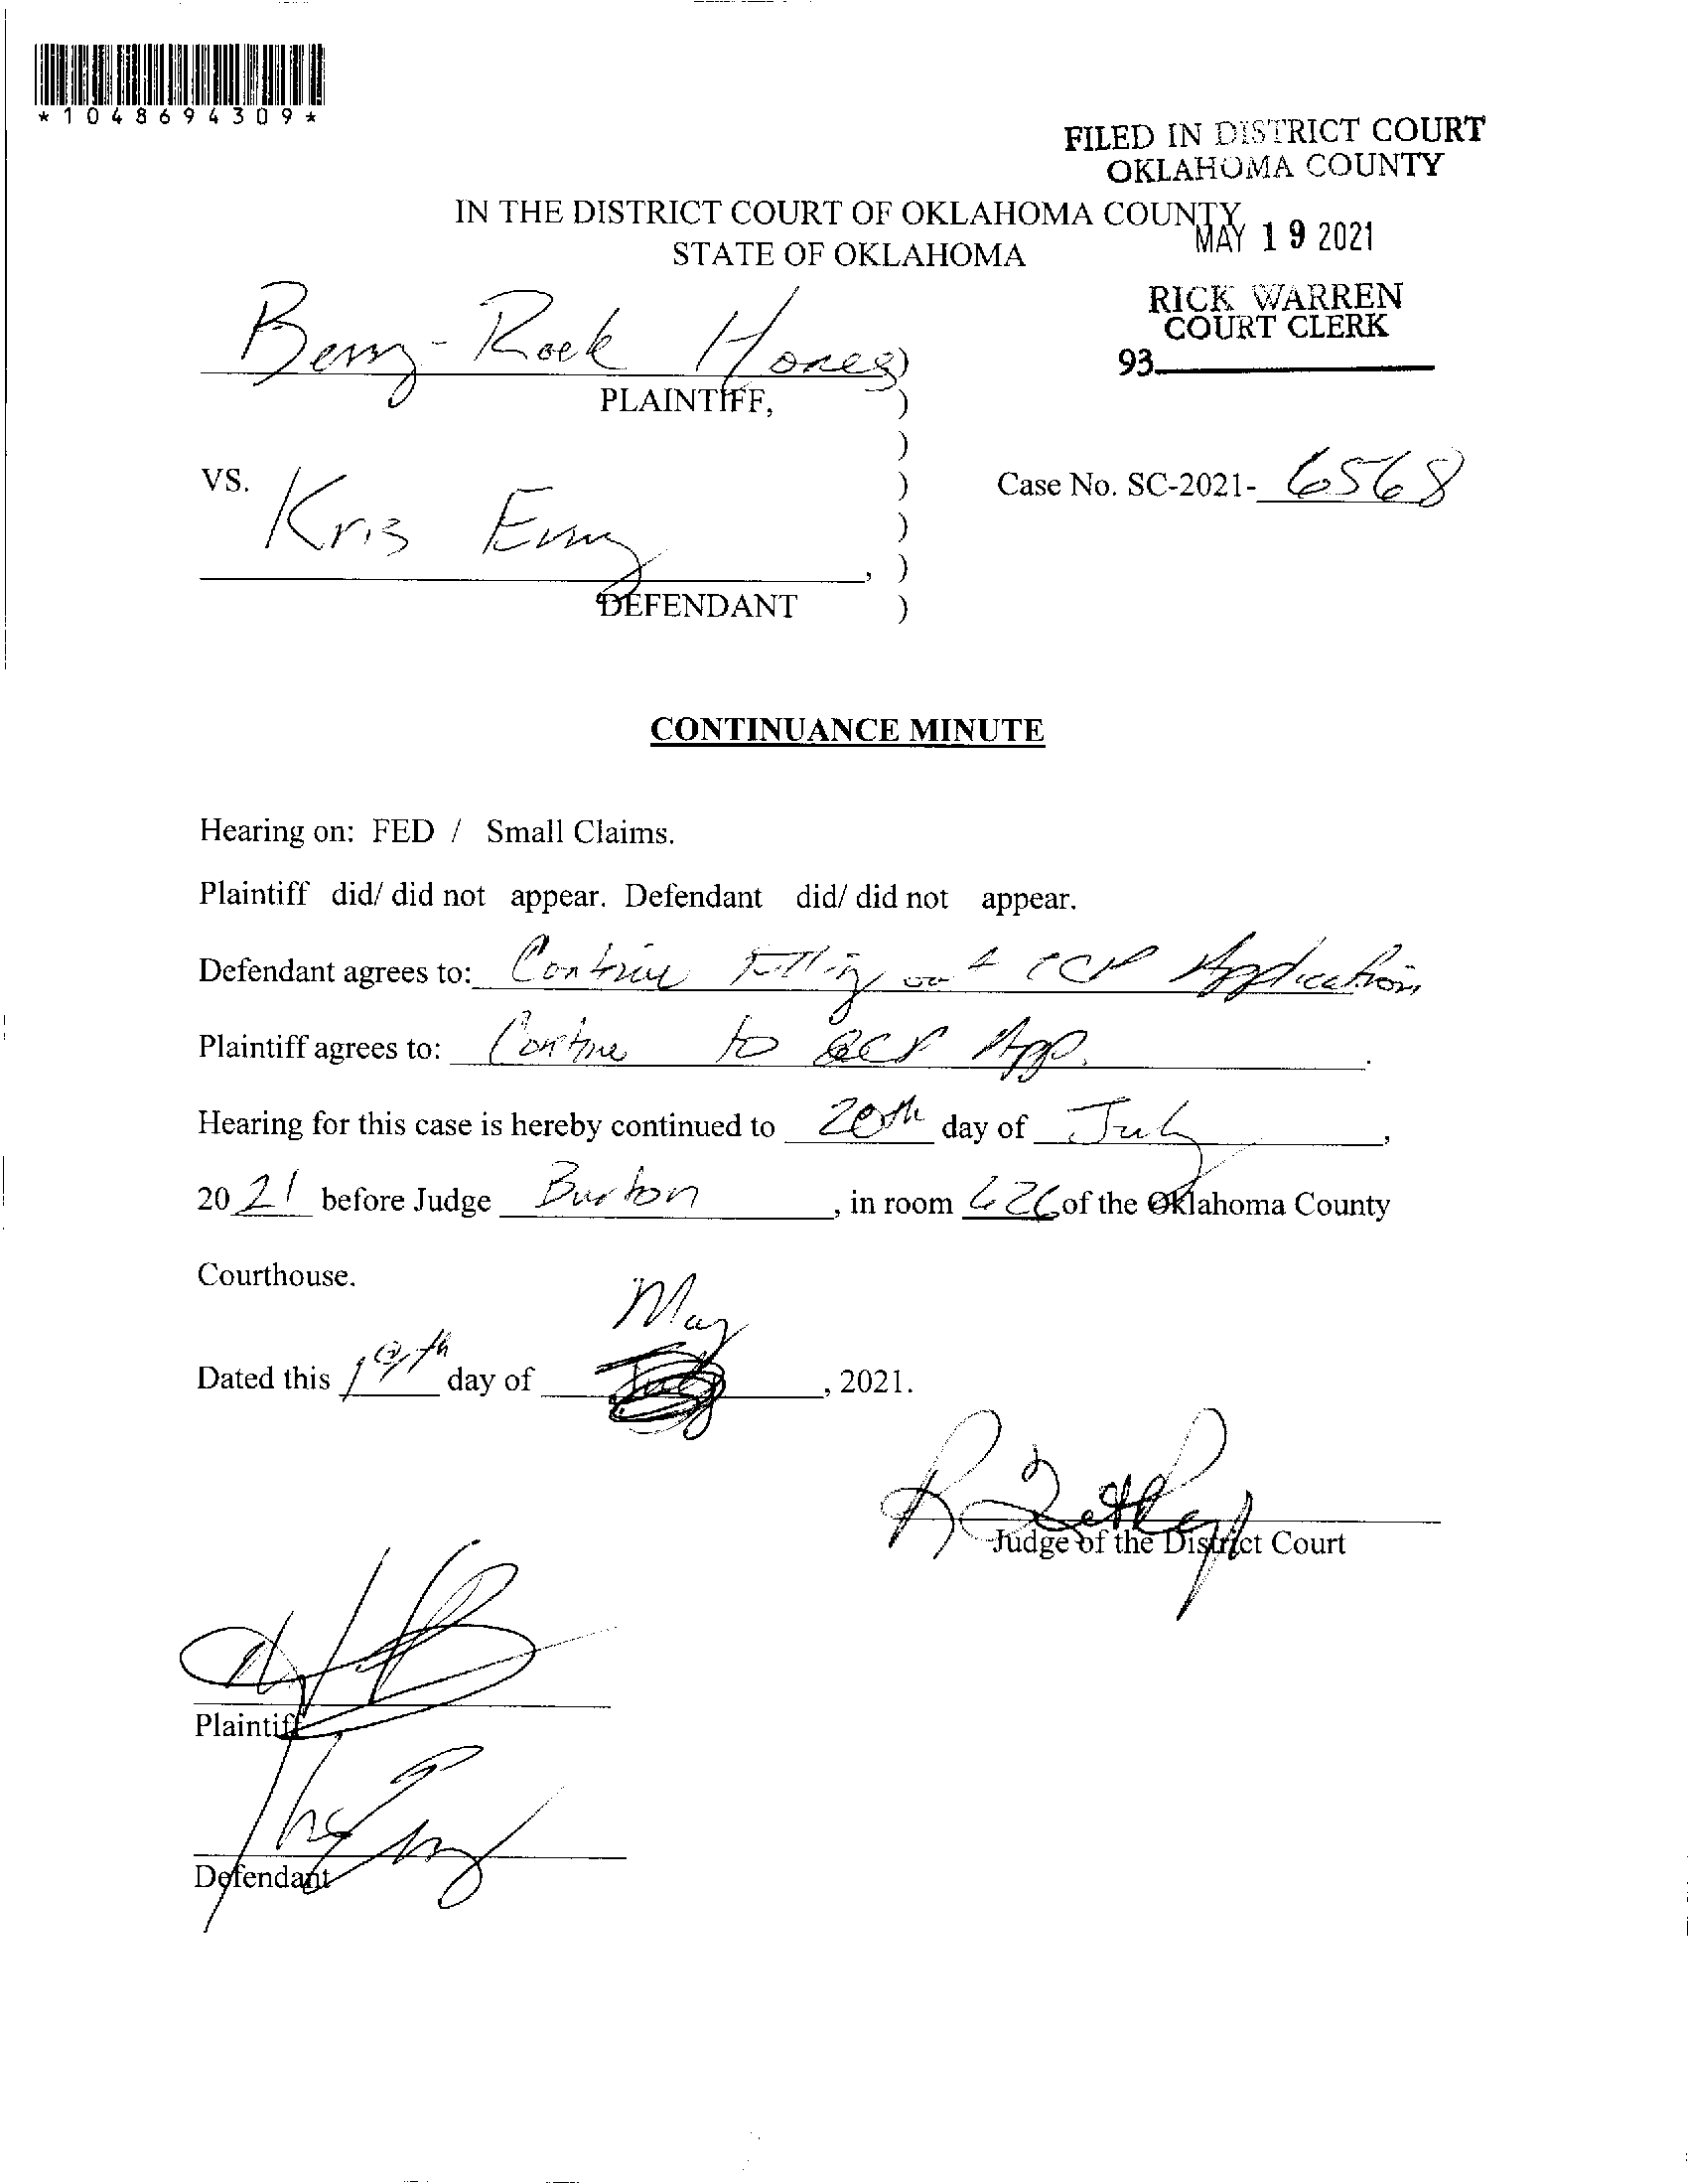 *1048694309*
FILED IN DISTRICT COURT
OKLAHOMA COUNTY
IN THE DISTRICT COURT OF OKLAHOMA COUNTY
MAY 19 2021
STATE OF OKLAHOMA
RICK WARREN
COURT CLERK
93
Berry-Rock Homes )
PLAINTIFF, )
)
VS. ) Case No. SC-2021- 6568
Kris )
, )
DEFENDANT )
CONTINUANCE MINUTE
Hearing on: FED / Small Claims.
Plaintiff did/ did not appear. Defendant did/ did not appear.
Defendant agrees to: Continue Filling out Application
Plaintiff agrees to: Continue to App.
Hearing for this case is hereby continued to 20th day of July,
2021 before Judge Burton, in room 626 of the Oklahoma County
Courthouse.
May
Dated this 19th day of July, 2021.
Judge of the District Court
Plaintiff
Defendant